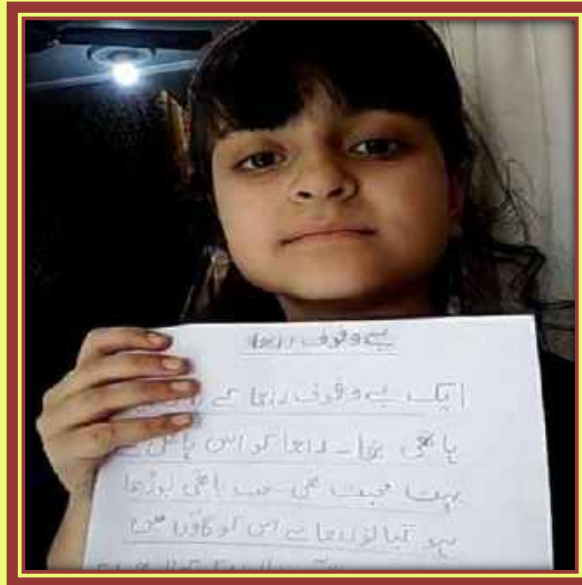 بے وقوف راجا
ایک بے وقوف راجا کے
ہاتھی تھا۔ راجا کو اس ہاتھی سے
بہت محبت تھی۔ جب ہاتھی بوڑھا
ہو گیا تو راجا نے اس کو گاؤں میں